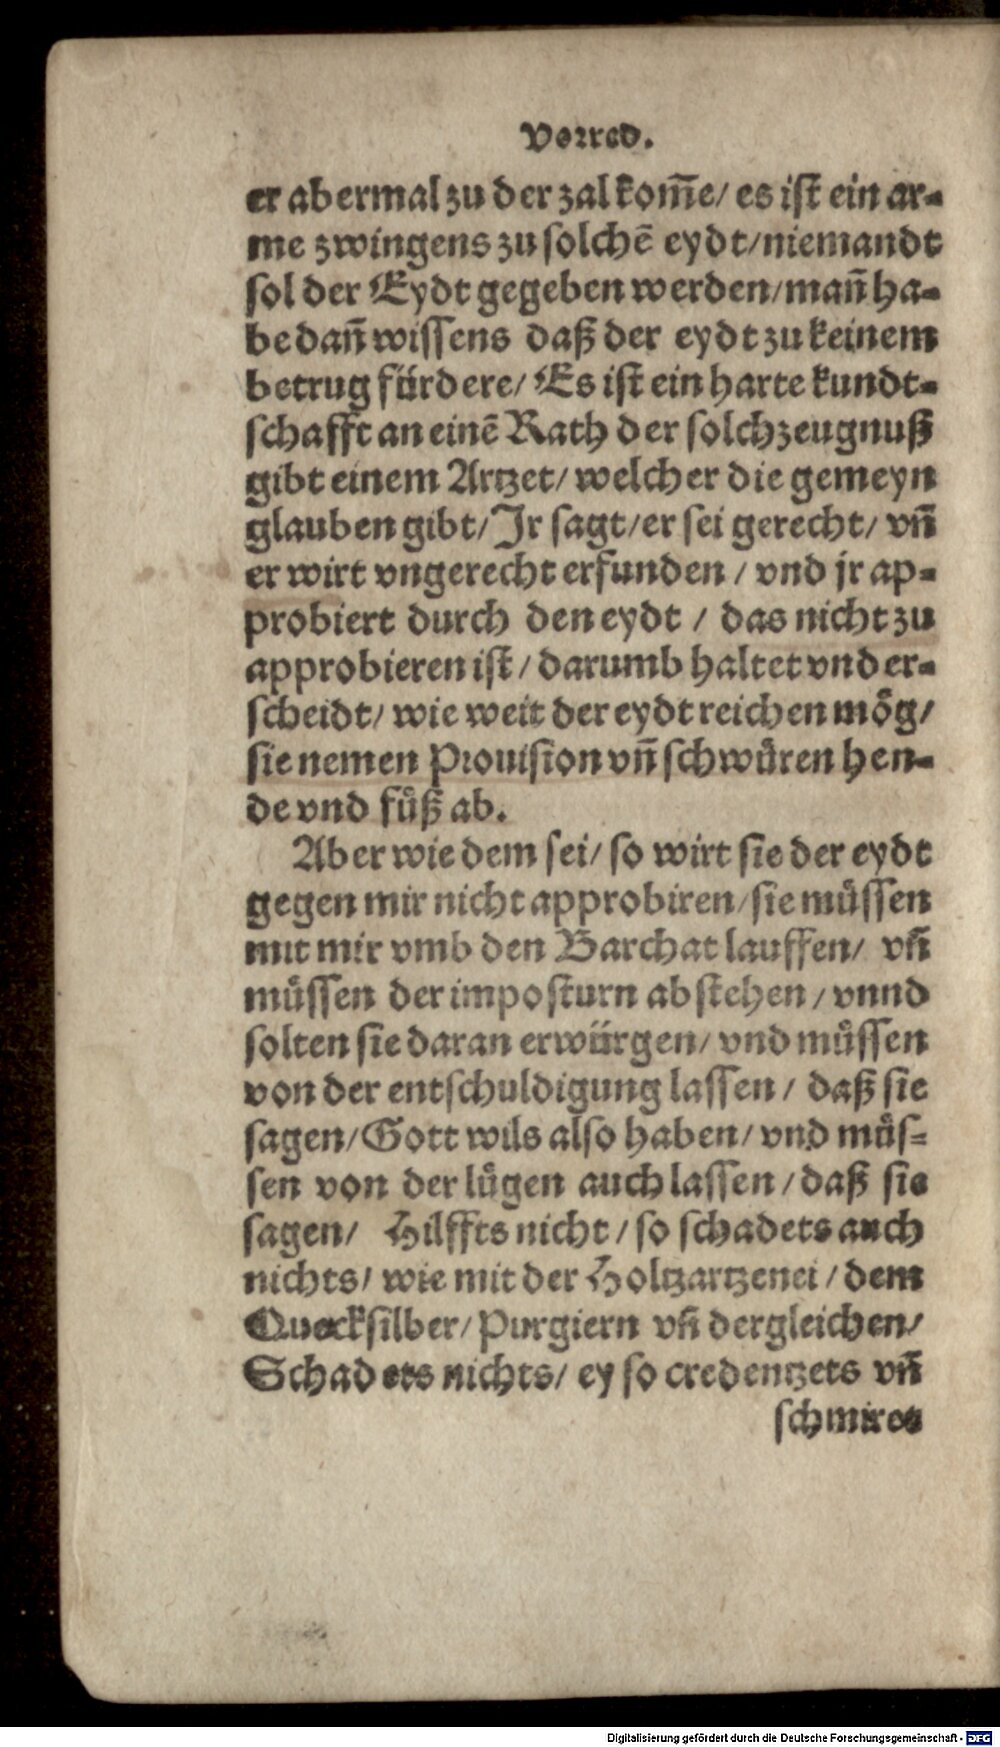 Vorred.
er abermal zu der zal kom̃e/ es ist ein ar-
me zwingens zu solchẽ eydt/niemandt
sol der Eydt gegeben werden/mañ ha-
be dañ wissens daß der eydt zu keinem
betrug fürdere/ Es ist ein harte kundt-
schafft an einẽ Rath der solch zeugnuß
gibt einem Artzet/ welcher die gemeyn
glauben gibt/ Jr sagt/er sei gerecht/ vñ
er wirt vngerecht erfunden / vnd jr ap-
probiert durch den eydt / das nicht zu
approbieren ist / darumb haltet vnd er-
scheidt/ wie weit der eydt reichen mög/
sie nemen Prouision vñ schwüren hen-
de vnd füß ab.
Aber wie dem sei/ so wirt sie der eydt
gegen mir nicht approbiren/sie müssen
mit mir vmb den Barchat lauffen/ vñ
müssen der imposturn abstehen / vnnd
solten sie daran erwürgen/ vnd müssen
von der entschuldigung lassen / daß sie
sagen/Gott wils also haben/ vnd müs-
sen von der lügen auch lassen / daß sie
sagen/ Hilffts nicht / so schadets auch
nichts/ wie mit der Holtzartzenei / dem
Quecksilber/ Purgiern vñ dergleichen/
Schadets nichts/ ey so credentzets vñ
schmirets
Digitalisierung gefördert durch die Deutsche Forschungsgemeinschaft - DFG